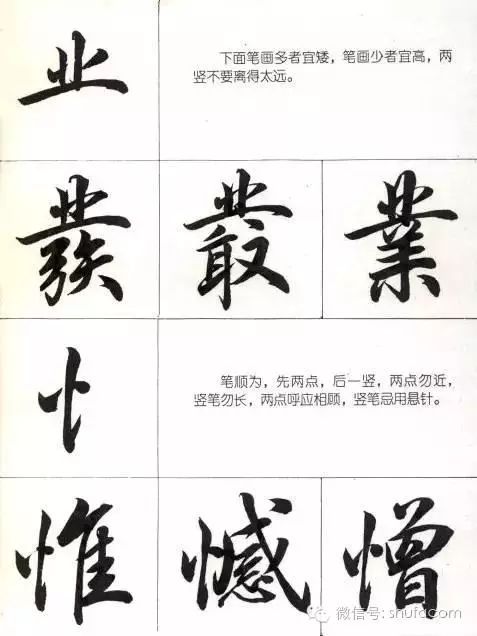 业
下面笔画多者宜矮，笔画少者宜高，两
竖不要离得太远。
叢 業
忄
笔顺为，先两点，后一竖，两点勿近，
竖笔勿长，两点呼应相顾，竖笔忌用悬针。
惟 憾 憎
微信号: